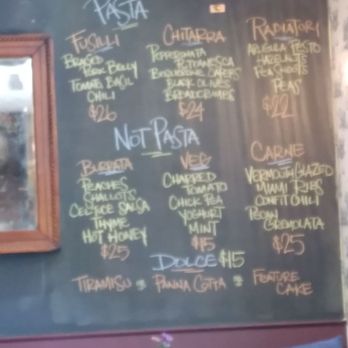 PASTA
FUSILLI
BRAISED
PORK BELLY
TOMATO BASIL
CHILI
$26
CHITARRA
PEPPERONATA
PUTTANESCA
CAPERS
BLACK OLIVES
BREADCRUMBS
$24
RADIATORI
ARUGULA PESTO
HAZELNUTS
PEA SHOOTS
PEAS
$22
NOT PASTA
BURRATA
PEACHES
SHALLOTS
SALSA
THYME
HOT HONEY
$25
VEG
CHARRED
TOMATO
CHICK PEA
YOGHURT
MINT
$15
CARNE
VERMOUTH GLAZED
MIAMI RIBS
CONFIT CHILI
PECAN
GREMOLATA
$25
DOLCE $15
TIRAMISU
PANNA COTTA
FEATURE
CAKE